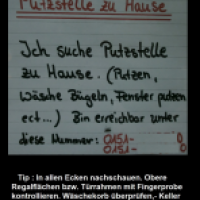 Putzstelle zu Hause
Ich suche Putzstelle
zu Hause. (Putzen,
Wäsche Bügeln, Fenster putzen
ect...) Bin erreichbar unter
diese Nummer: 0151-
0151-
Tip : In allen Ecken nachschauen, Obere
Regalflächen bzw. Türrahmen mit Fingerprobe
kontrollieren. Wäschekorb überprüfen,- Keller